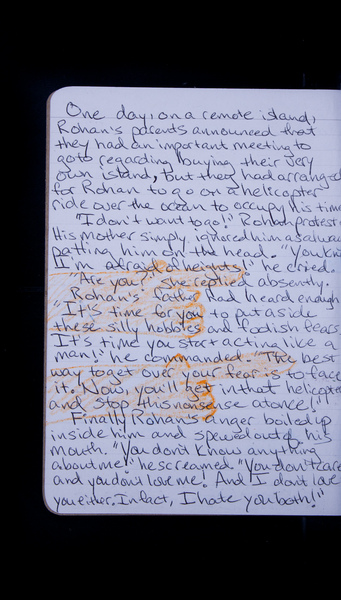 One day, on a remote island,
Rohan's parents announced that
they had an important meeting to
goto regarding buying their very
own island, but they had arranged
for Rohan to go on a helicopter
ride over the ocean to occupy his time.
"I don't want to go!" Rohan protest
His mother simply ignored him as
patting him on the head. "You know
I'm afraid of heights," he cried.
"Are you?" she replied absently.
Rohan's father had heard enough
"It's time for you to put aside
these silly hobbies and foolish fears.
It's time you start acting like a
man!" he commanded. "The best
way to get over your fear is to face
it. Now you'll get in that helicopter
and stop this nonsense at once!"
Finally Rohan's anger boiled up
inside him and spewed out of his
mouth. "You don't know anything
about me!" he screamed. "You don't care
and you don't love me! And I don't love
you either. In fact, I hate you both!"